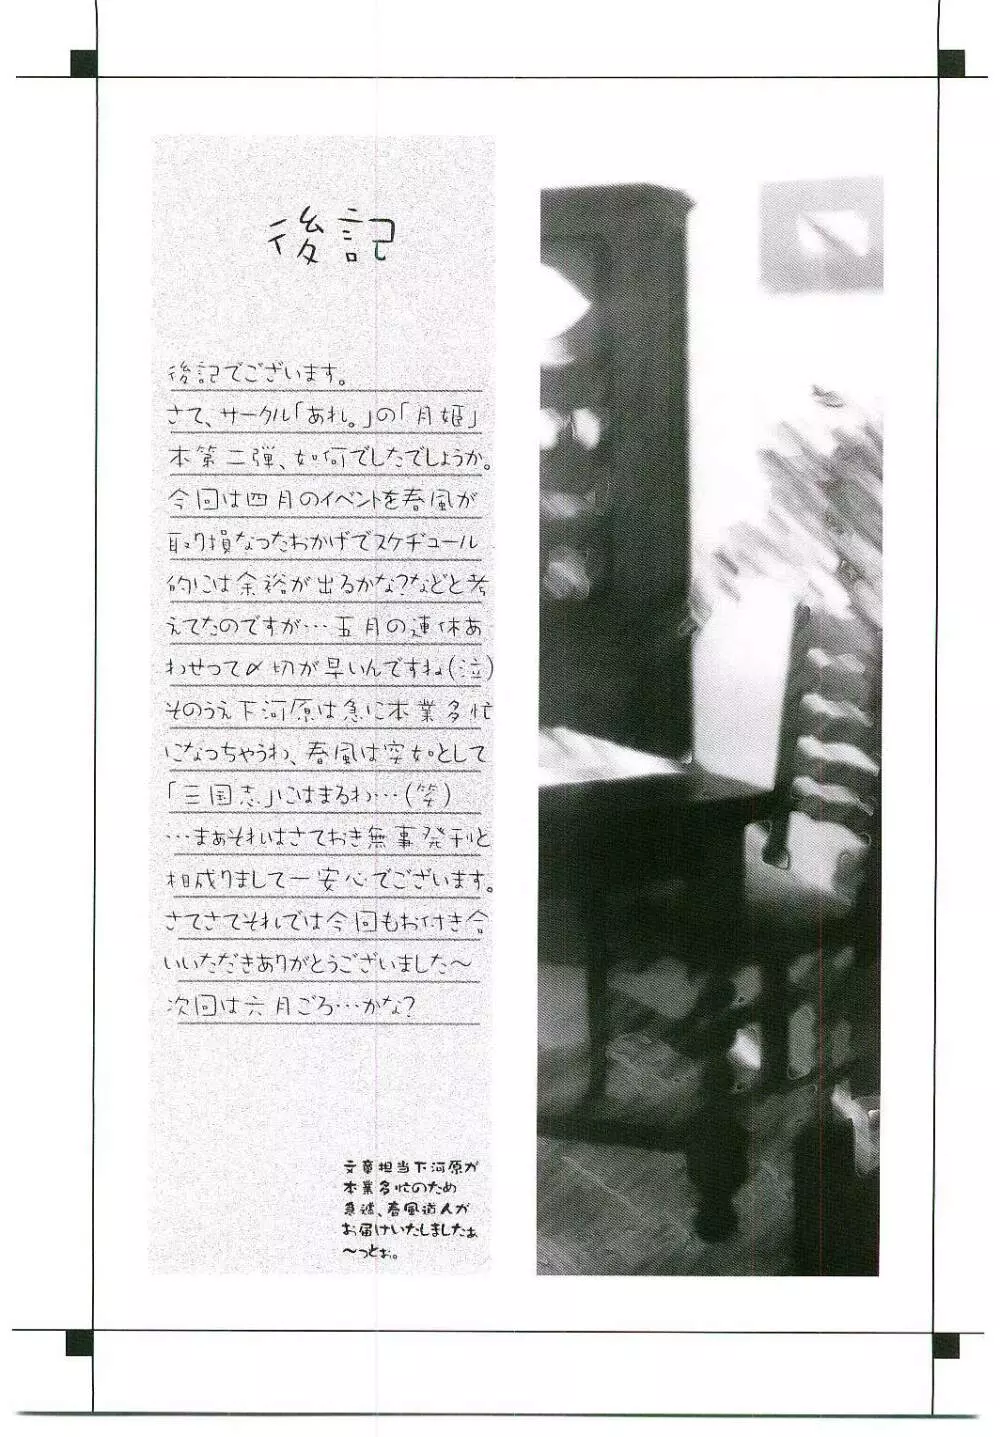 後記
後記でございます。
さて、サークル「あれ。」の「月姫」
本第二弾、如何でしたでしょうか。
今回は四月のイベントを春風が
取り損なったわかげでスケヂュール
的には余裕が出るかな?などと考
えてたのですが…五月の連休あ
わせって〆切が早いんですね(泣)
そのうえ下河原は急に本業多忙
になっちゃうわ、春風は突如として
「三国志」にはまるわ…(笑)
…まぁそれはさておき無事発刊と
相成りまして一安心でございます。
さてさてそれでは今回もお付き合
いいただきありがとうございました～
次回は六月ごろ…かな?
文章担当下河原が
本業多忙のため
急遽、春風道人が
お届けいたしましたぁ
～っとぉ。